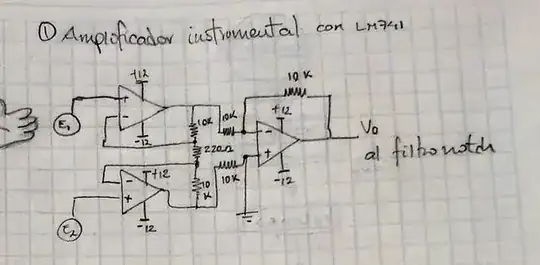 ① Amplificador instrumental con LM741
10 K
+12
+12
10K
10K
E1
-12
220Ω
Vo
al filtro notch
+12
10K
10K
-12
E2
-12